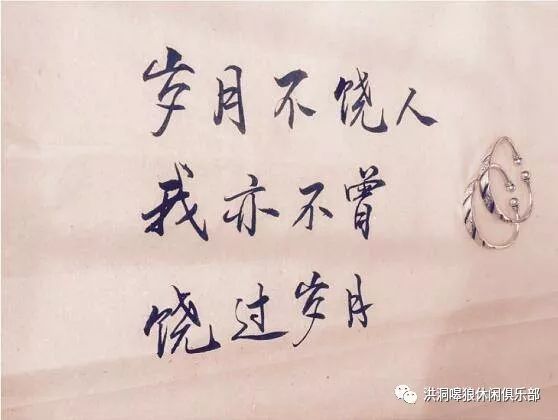 岁月不饶人
我亦不曾
饶过岁月
洪洞嗥狼休闲俱乐部